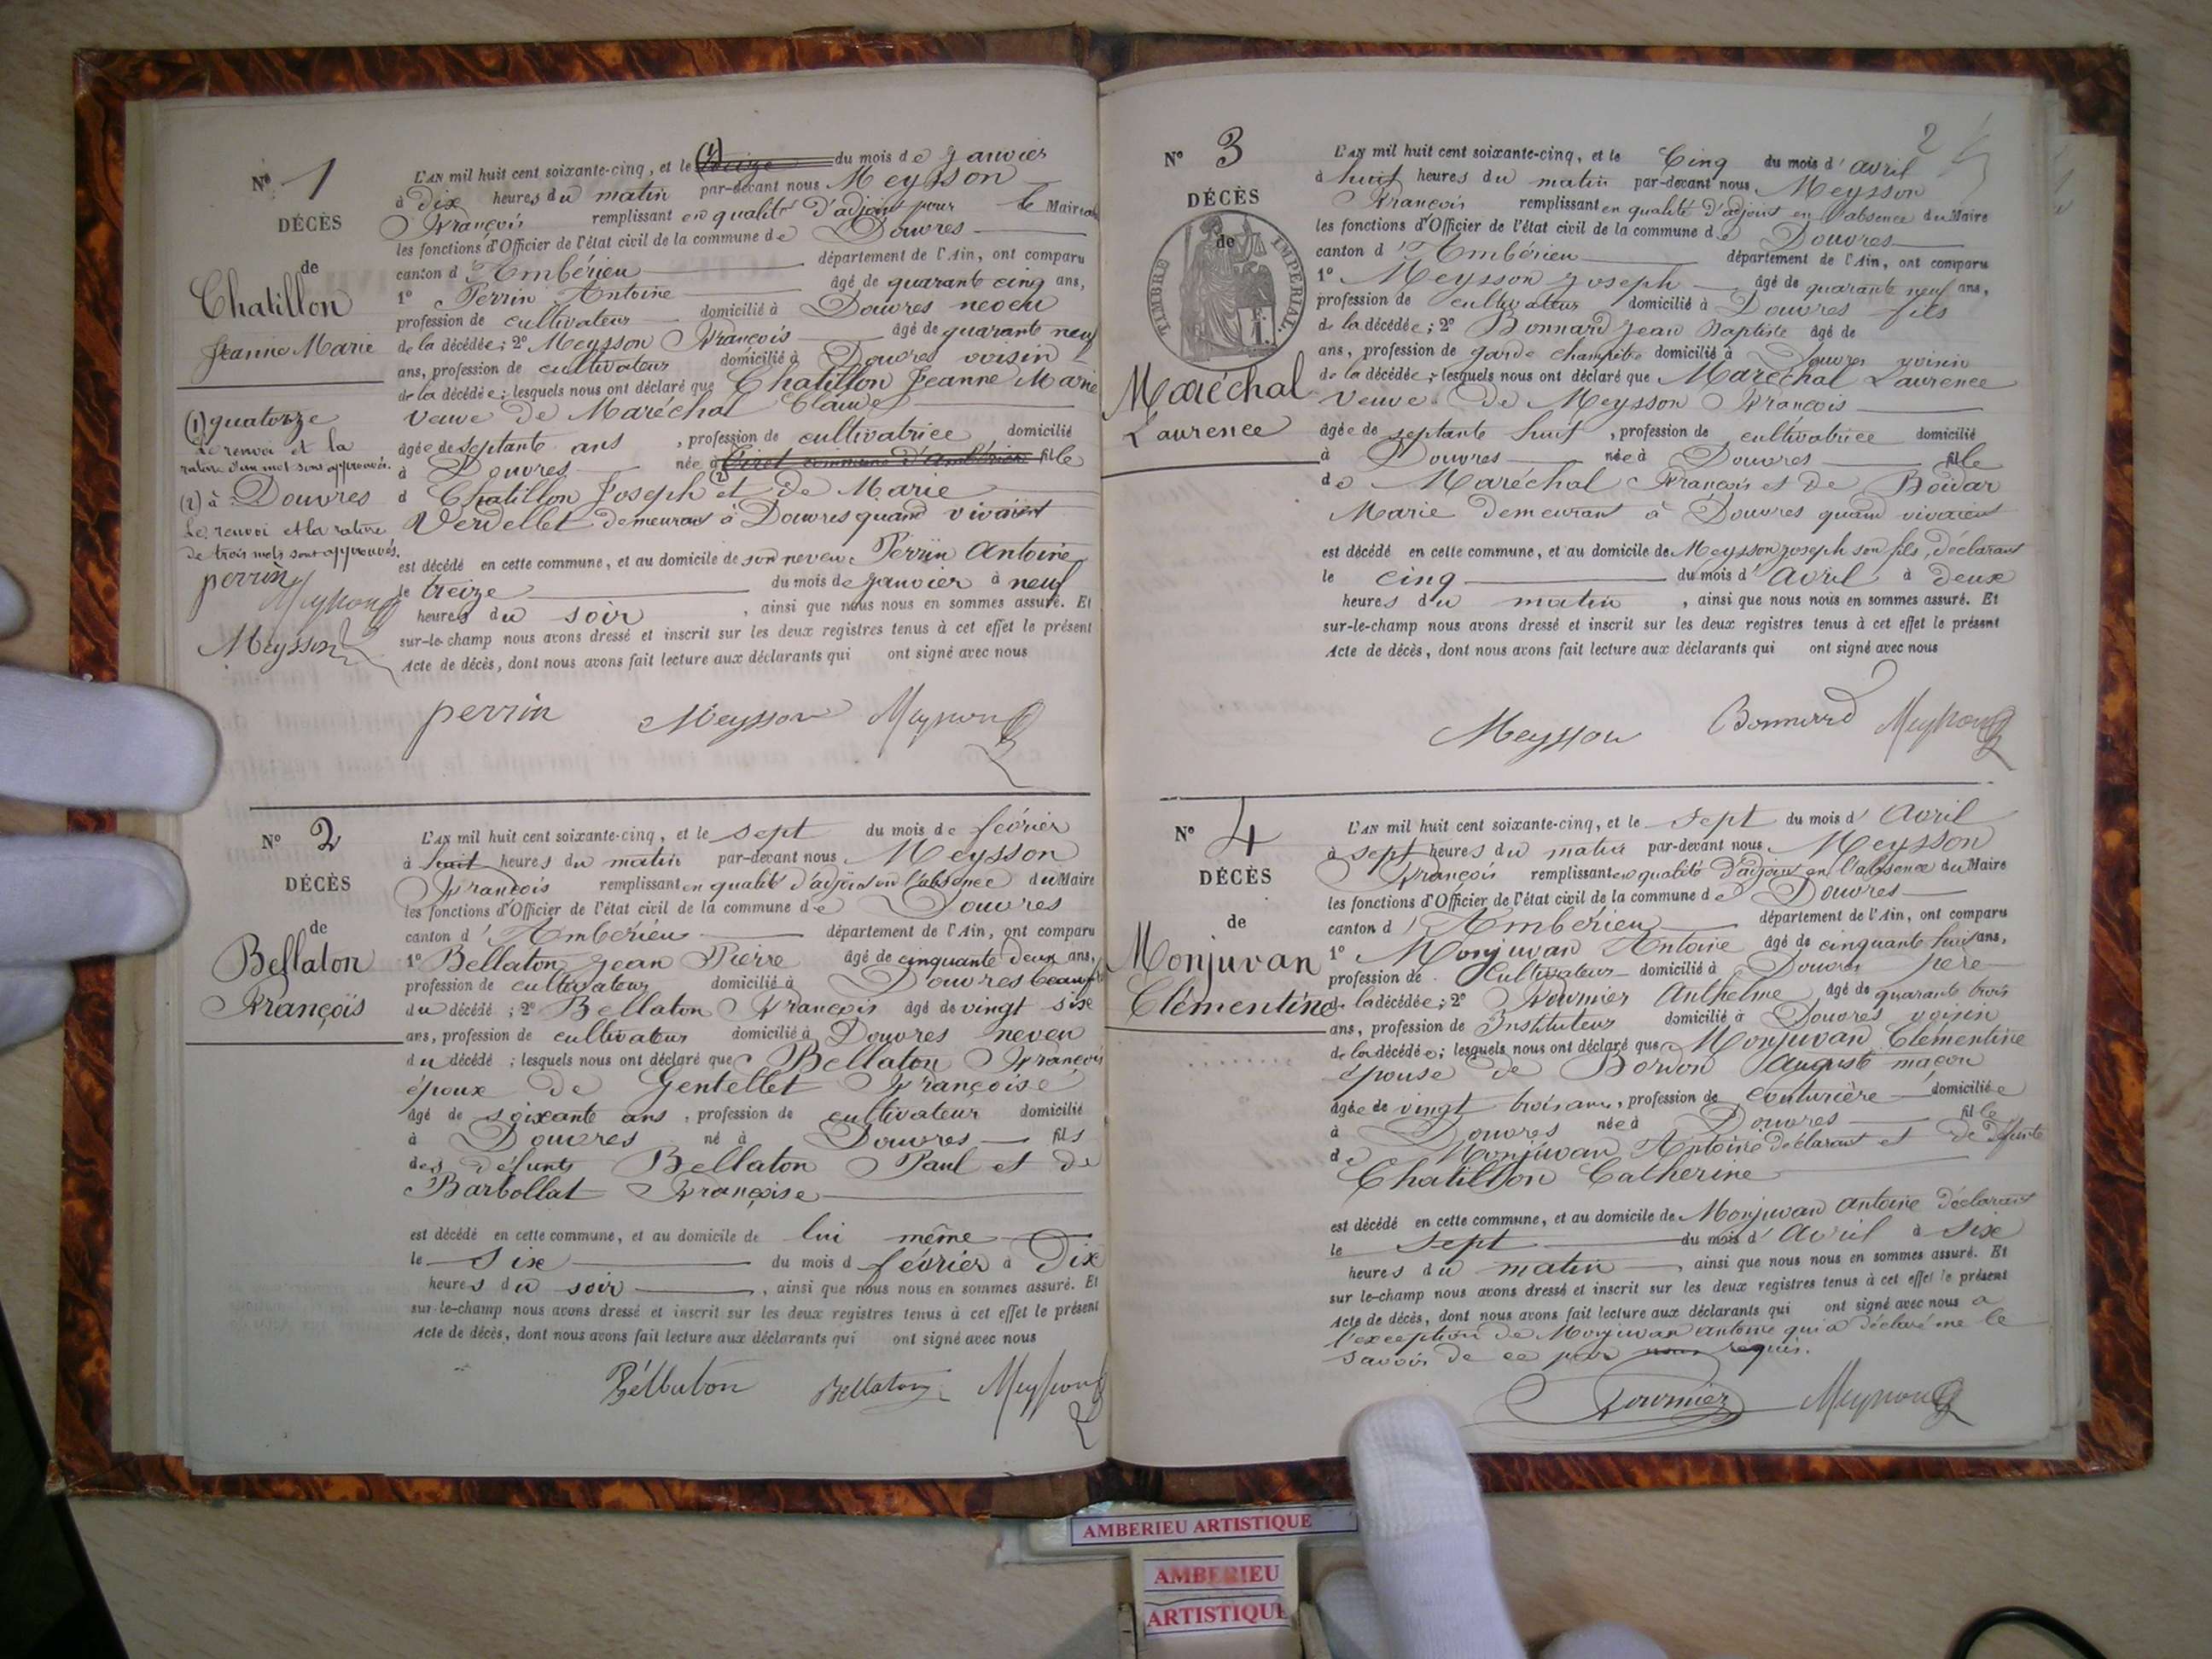 N° 1
DÉCÈS
de
Chatillon
Jeanne Marie
(1) quatorze
Le renvoi et la
rature d'un mot sont approuvés.
(2) à Douvres
Le renvoi et la rature
de trois mots sont approuvés.
perrin
Meysson
L'AN mil huit cent soixante-cinq, et le (1) treize du mois de Janvier
à Dix heures du matin par-devant nous Meysson
François remplissant en qualité d'adjoint pour le Maire
les fonctions d'Officier de l'état civil de la commune de Douvres
canton d'Ambérieu département de l'Ain, ont comparu
1° Perrin Antoine âgé de quarante cinq ans,
profession de cultivateur domicilié à Douvres neveu
de la décédée; 2° Meysson François âgé de quarante neuf
ans, profession de cultivateur domicilié à Douvres voisin
de la décédée; lesquels nous ont déclaré que Chatillon Jeanne Marie
veuve de Maréchal Claude
âgée de septante ans, profession de cultivatrice domicilié
à Douvres née à commune d'Ambérieu fille
d Chatillon Joseph (2) et de Marie
Verdellet demeurant à Douvres quand vivaient
est décédé en cette commune, et au domicile de son neveu Perrin Antoine
le treize du mois de Janvier à neuf
heures du soir, ainsi que nous nous en sommes assuré. Et
sur-le-champ nous avons dressé et inscrit sur les deux registres tenus à cet effet le présent
Acte de décès, dont nous avons fait lecture aux déclarants qui ont signé avec nous
perrin Meysson Meysson
N° 2
DÉCÈS
de
Bellaton
François
L'AN mil huit cent soixante-cinq, et le sept du mois de février
à huit heures du matin par-devant nous Meysson
François remplissant en qualité d'adjoint en l'absence du Maire
les fonctions d'Officier de l'état civil de la commune de Douvres
canton d'Ambérieu département de l'Ain, ont comparu
1° Bellaton Jean Pierre âgé de cinquante deux ans,
profession de cultivateur domicilié à Douvres
du décédé; 2° Bellaton François âgé de vingt six
ans, profession de cultivateur domicilié à Douvres neveu
du décédé; lesquels nous ont déclaré que Bellaton François
époux de Gentellet Françoise
âgé de soixante ans, profession de cultivateur domicilié
à Douvres né à Douvres fils
des défunts Bellaton Paul et de
Barbollat Françoise
est décédé en cette commune, et au domicile de lui même
le Six du mois d février à Dix
heures du soir, ainsi que nous nous en sommes assuré. Et
sur-le-champ nous avons dressé et inscrit sur les deux registres tenus à cet effet le présent
Acte de décès, dont nous avons fait lecture aux déclarants qui ont signé avec nous
Bellaton Bellaton Meysson
2
N° 3
DÉCÈS
de
TIMBRE IMPERIAL
Maréchal
Laurence
L'AN mil huit cent soixante-cinq, et le Cinq du mois d'avril
à huit heures du matin par-devant nous Meysson
François remplissant en qualité d'adjoint en l'absence du Maire
les fonctions d'Officier de l'état civil de la commune de Douvres
canton d'Ambérieu département de l'Ain, ont comparu
1° Meysson Joseph âgé de quarante neuf ans,
profession de cultivateur domicilié à Douvres fils
de la décédée; 2° Bonnard Jean Baptiste âgé de
ans, profession de garde champêtre domicilié à Douvres voisin
de la décédée; lesquels nous ont déclaré que Maréchal Laurence
veuve de Meysson François
âgée de septante huit, profession de cultivatrice domicilié
à Douvres née à Douvres fille
de Maréchal François et de Boidar
Marie demeurant à Douvres quand vivaient
est décédé en cette commune, et au domicile de Meysson Joseph son fils, déclarant
le cinq du mois d'avril à deux
heures du matin, ainsi que nous nous en sommes assuré. Et
sur-le-champ nous avons dressé et inscrit sur les deux registres tenus à cet effet le présent
Acte de décès, dont nous avons fait lecture aux déclarants qui ont signé avec nous
Meysson Bonnard Meysson
N° 4
DÉCÈS
de
Monjuvan
Clémentine
L'AN mil huit cent soixante-cinq, et le sept du mois d'Avril
à sept heures du matin par-devant nous Meysson
François remplissant en qualité d'adjoint en l'absence du Maire
les fonctions d'Officier de l'état civil de la commune de Douvres
canton d'Ambérieu département de l'Ain, ont comparu
1° Monjuvan Antoine âgé de cinquante huit ans,
profession de Cultivateur domicilié à Douvres père
de la décédée; 2° Fournier Anthelme âgé de quarante trois
ans, profession de Instituteur domicilié à Douvres voisin
de la décédée; lesquels nous ont déclaré que Monjuvan Clémentine
épouse de Bordon Auguste maçon
âgée de vingt trois ans, profession de couturière domiciliée
à Douvres née à Douvres fille
de Monjuvan Antoine déclarant et de défunte
Chatillon Catherine
est décédé en cette commune, et au domicile de Monjuvan Antoine déclarant
le Sept du mois d'Avril à six
heures du matin, ainsi que nous nous en sommes assuré. Et
sur le-champ nous avons dressé et inscrit sur les deux registres tenus à cet effet le présent
Acte de décès, dont nous avons fait lecture aux déclarants qui ont signé avec nous a
l'exception de Monjuvan Antoine qui a déclaré ne le
savoir de ce par nous requis.
Fournier Meysson
AMBERIEU ARTISTIQUE
AMBERIEU
ARTISTIQUE